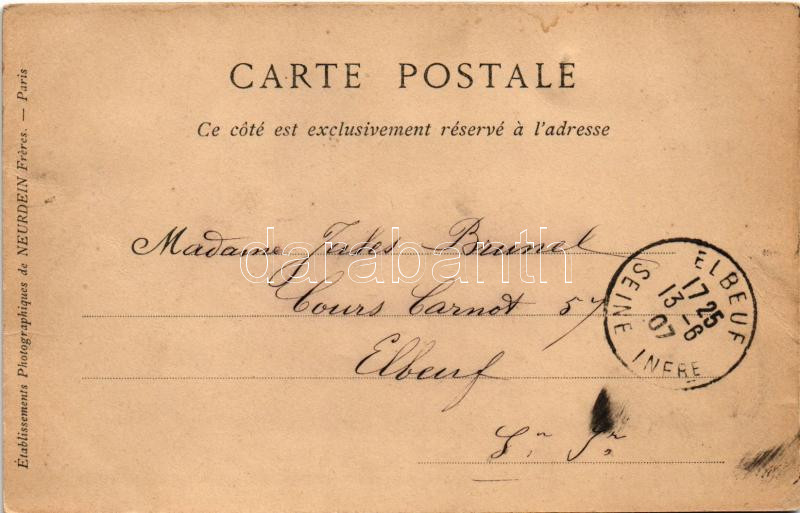 CARTE POSTALE
Ce côté est exclusivement réservé à l'adresse
Madame Jules Brunel
Cours Carnot 57
Elbeuf
S. Inre
ELBEUF
17 25
13 - 6
07
SEINE INFRE
Établissements Photographiques de NEURDEIN Frères. — Paris
darabanth